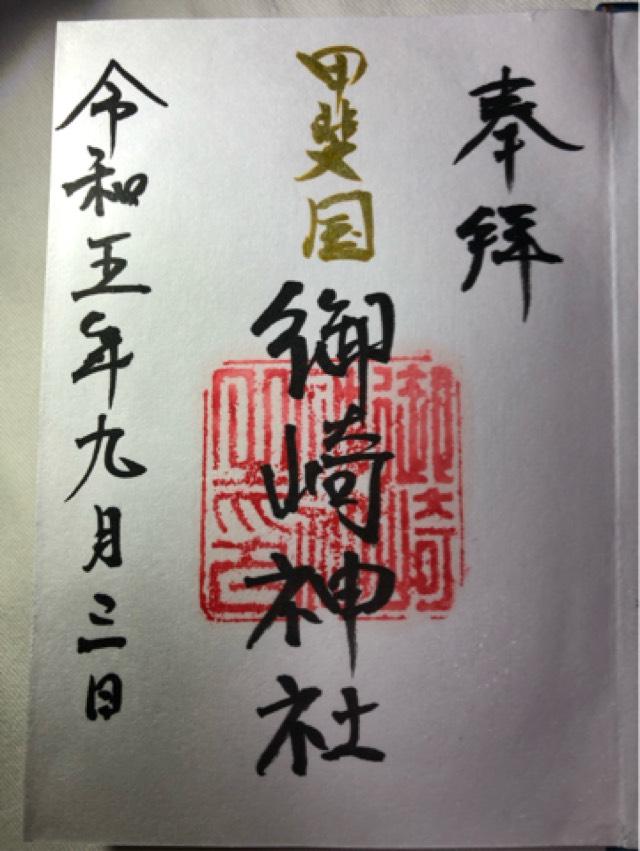 奉拝
甲斐国
御崎神社
令和五年九月三日